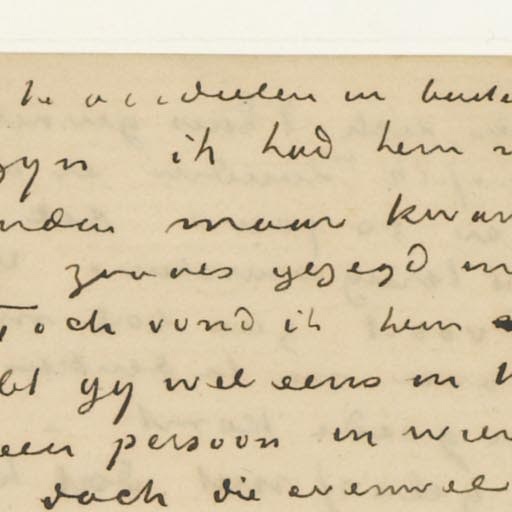 te oordeelen en buite
zyn ik had hem
nden maar kwam
zooals gezegd en
Toch vond ik hem
bt gy wel eens in
een persoon in wien
doch die evenwel